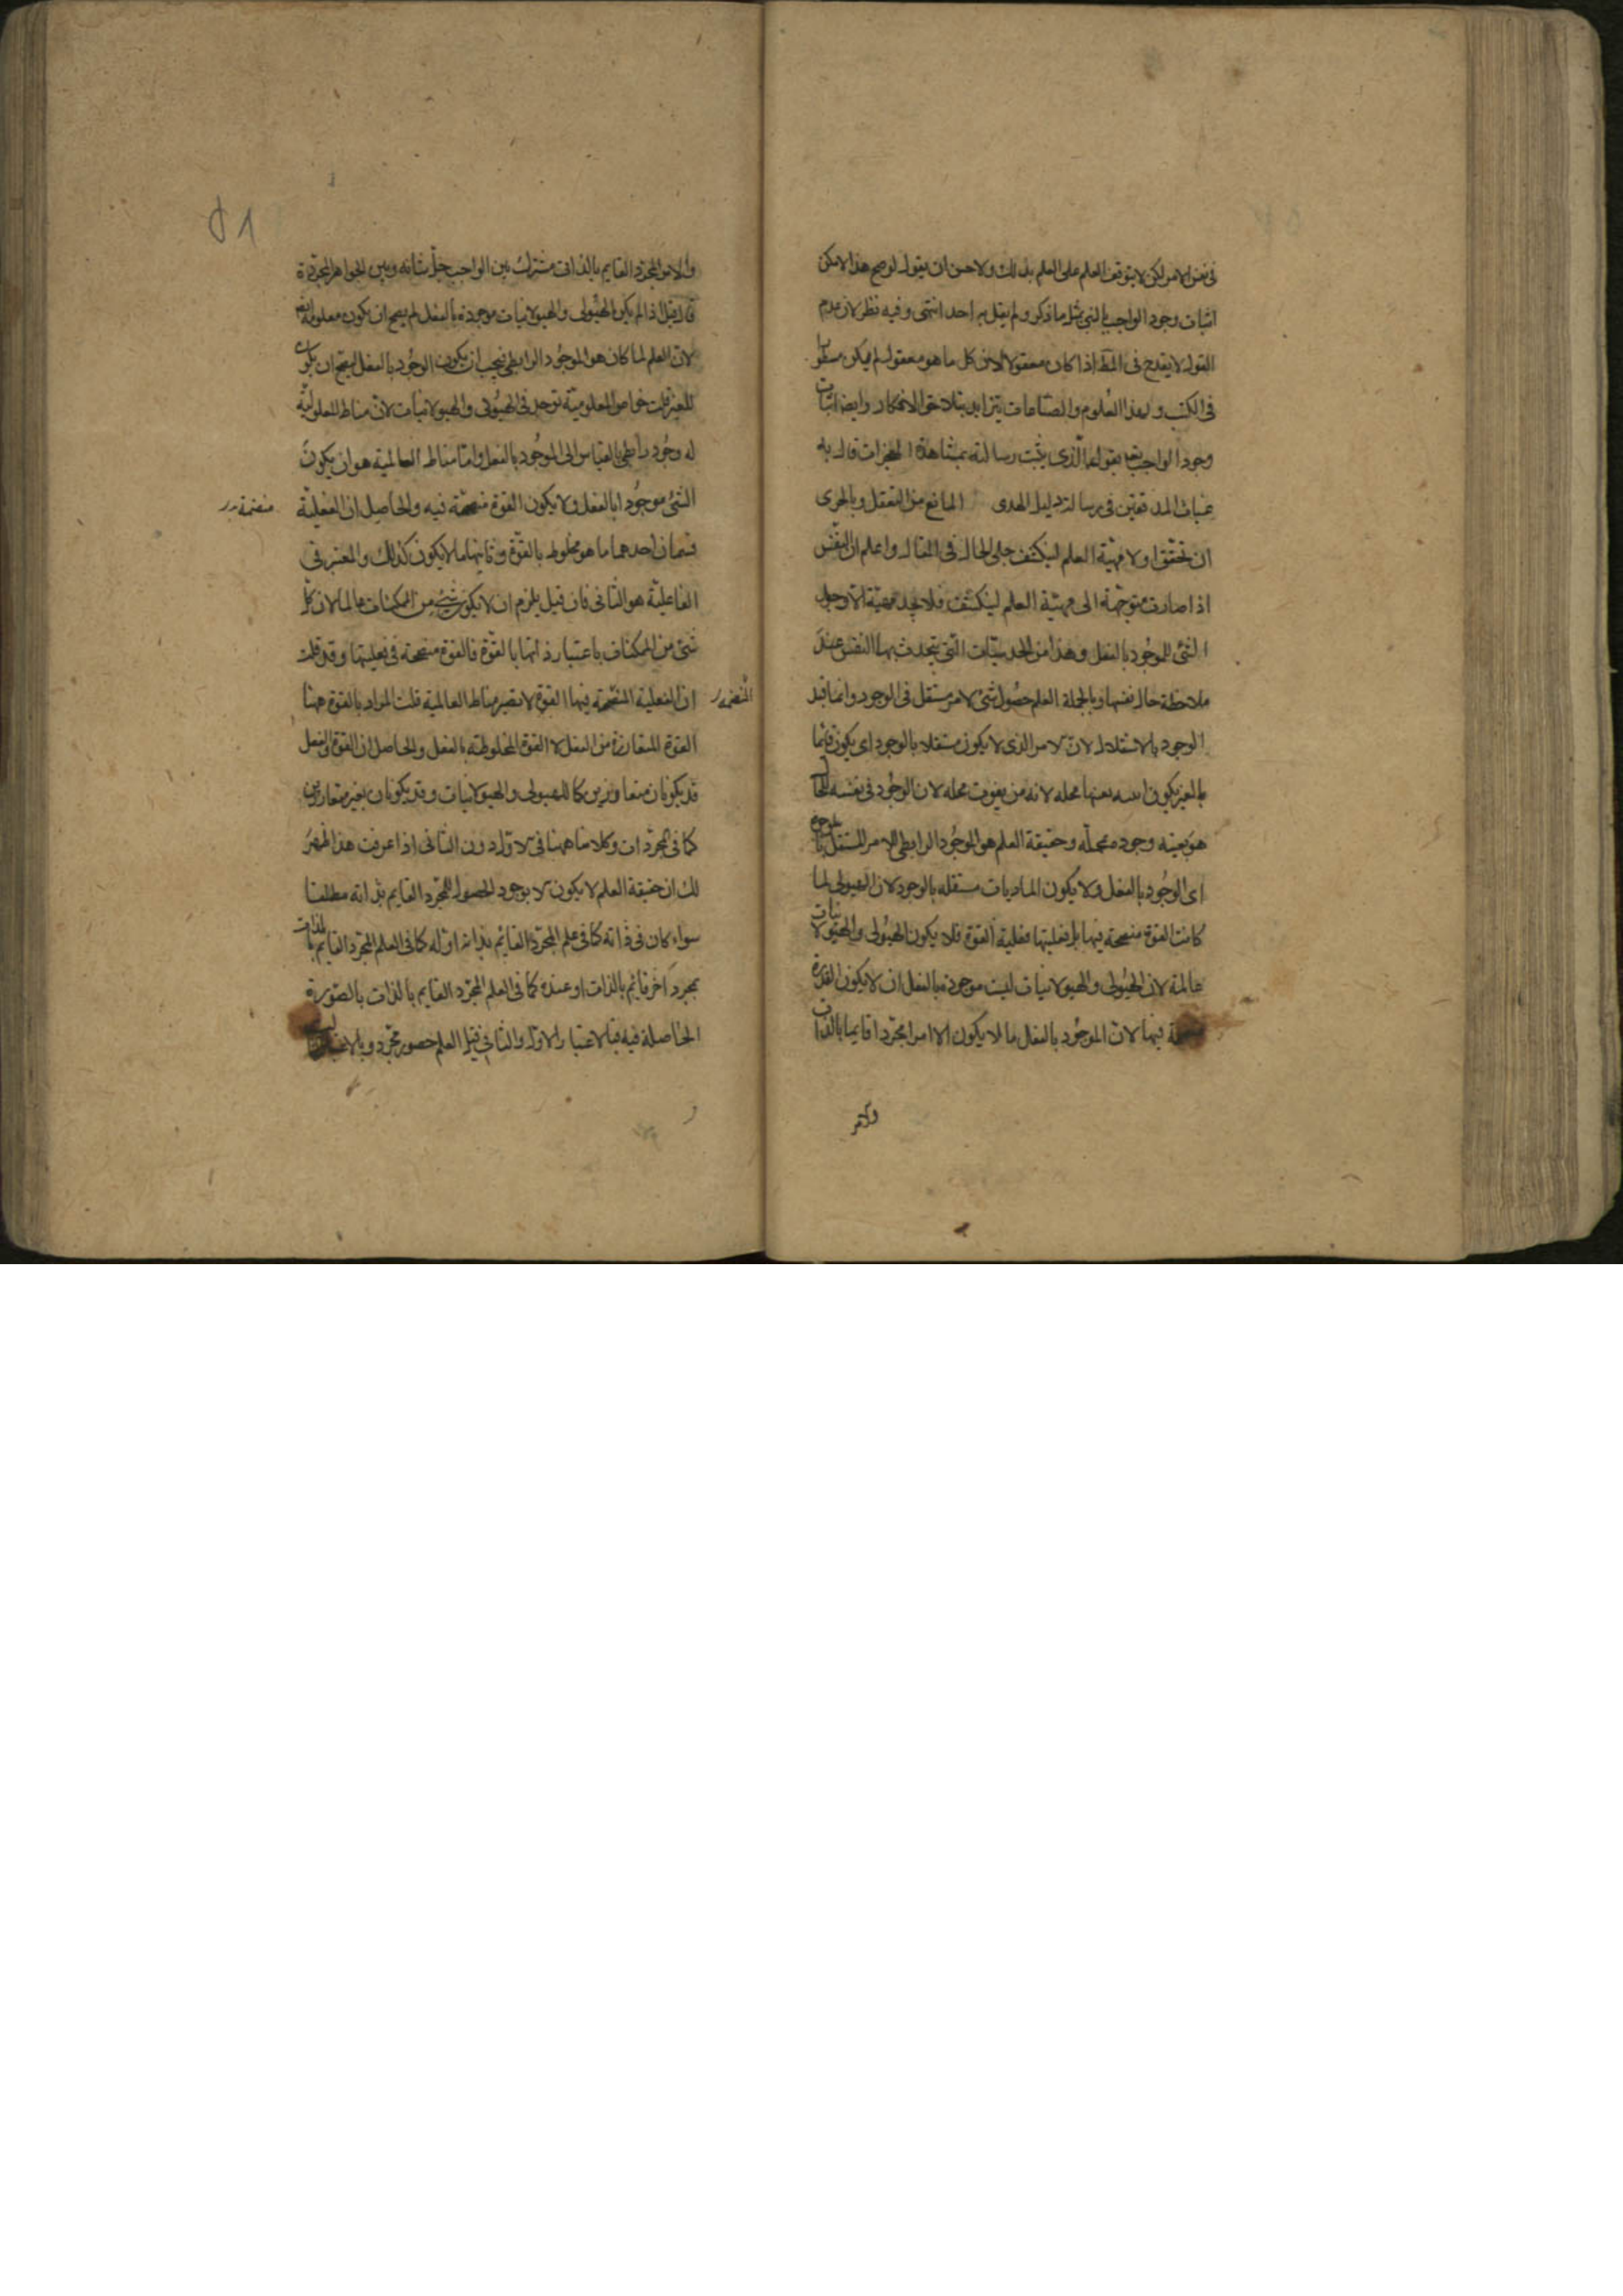 فى نفس الامر لكن لا يتوقف العلم على العلم بذلك ولا حسن ان يقول لو صح هذا لامكن
اثبات وجود الواجب بالنبى مثل ما ذكر ولم يقل به احد انتهى وفيه نظر لان عدم
القول لا يقدح فى المط اذا كان معقولا لان كل ما هو معقول لم يكن مسطورا
فى الكتب ولهذا العلوم والصناعات يتزايد بتلاحق الافكار وايضا اثبات
وجود الواجب تعه بقول الذى يثبت رسالته بمشاهدة المعجزات قال به
غياث المدققين فى رسالة دليل الهدى المانع من التعقل وبالحرى
ان نحقق اولا مهية العلم لينكشف جلى الحال فى المقال واعلم ان النفس
اذا صارت متوجهة الى مهية العلم لينكشف فلا تجد مهية الا وجود
الشئ للموجود بالفعل وهذا من الحدسيات التى يتحدث بها النفس عند
ملاحظة حال نفسها وبالجملة العلم حصول شئ لامر مستقل فى الوجود وانما قيد
الوجود بالاستقلال لان الامر الذى لا يكون مستقلا بالوجود اى يكون قائما
بالغير يكون محله لانه من نعوت محله لان الوجود فى نفسه للحال
هو بعينه وجوده لمحله وحقيقة العلم هو الوجود الرابطى للامر المستقل بالوجود
اى الوجود بالفعل ولا يكون الماديات مستقله بالوجود لان الهيولى لما
كانت القوة منضمة فيها بل فعليتها فعلية القوة فلا يكون الهيولى والهيولانيات
عالمة لان الهيولى والهيولانيات ليست موجودة بالفعل ان لا يكون القوة
فيها لان الموجود بالفعل ما لا يكون الا امرا مجردا قايما بالذات
والامر
والامر المجرد القايم بالذات مشترك بين الواجب جل شانه وبين الجواهر المجردة
فان قيل اذا لم يكن الهيولى والهيولانيات موجودة بالفعل لم يصح ان يكون معلومة
لان العلم لما كان هو الوجود الرابطى فيجب ان يكون الوجود بالفعل ليصح ان يكون
للغير قلت خواص المعلومية توجد فى الهيولى والهيولانيات لان مناط المعلومية
له وجود رابطى بالقياس الى الموجود بالفعل واما مناط العالمية هو ان يكون
الشئ موجودا بالفعل ولا يكون القوة منضمة فيه والحاصل ان الفعلية
منضمة
قسمان احدهما ما هو مخلوط بالقوة وثانيها ما لا يكون كذلك والمعتبر فى
الفاعلية هو الثانى فان قيل يلزم ان لا يكون شئ من الممكنات عالما لان كل
شئ من الممكنات باعتبار ذاتها بالقوة فالقوة منضمة فى فعليتها وقد قلت
ان الفعلية المنضمة فيها القوة لا تصير مناط العالمية قلت المراد بالقوة ههنا
المنضمة
القوة المتقارنة من الفعل لا القوة المخلوطة بالفعل والحاصل ان القوة والفعل
قد يكونان متقارنين كما للهيولى والهيولانيات وقد يكونان بغير متقارنين
كما فى المجردات وكلامنا ههنا فى الاول دون الثانى اذا عرفت هذا ظهر
لك ان حقيقة العلم لا يكون الا بوجود الحصول للمجرد القايم بذاته مطلقا
سواء كان فى ذاته كما فى علم المجرد القائم بذاته او له كما فى العلم المجرد القايم بالذات
بمجرد اخر قائم بالذات او عنده كما فى العلم المجرد القايم بالذات بالصورة
الحاصلة فيه فبالاعتبار الاول والثانى قيل العلم حضور مجرد